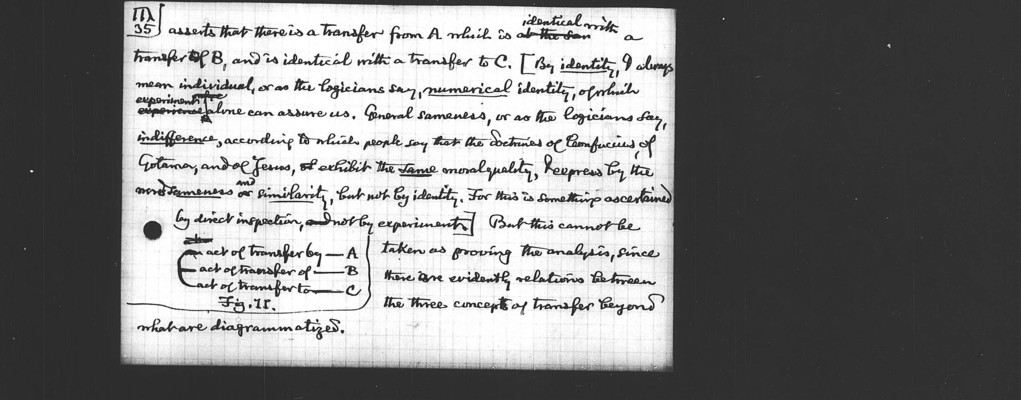 III
35
asserts that there is a transfer from A which is identical with a
transfer of B, and is identical with a transfer to C. [By identity, I always
mean individual, or as the logicians say, numerical identity, of which
experiment alone can assure us. General sameness, or as the logicians say,
indifference, according to which people say that the doctrines of Confucius, of
Gotama, and of Jesus, exhibit the same moral quality, I express by the
words sameness and similarity, but not by identity. For this is something ascertained
by direct inspection, not by experiment.] But this cannot be
taken as proving the analysis, since
there are evidently relations between
the three concepts of transfer beyond
what are diagrammatized.
act of transfer by — A
act of transfer of — B
act of transfer to — C
Fig. 11.